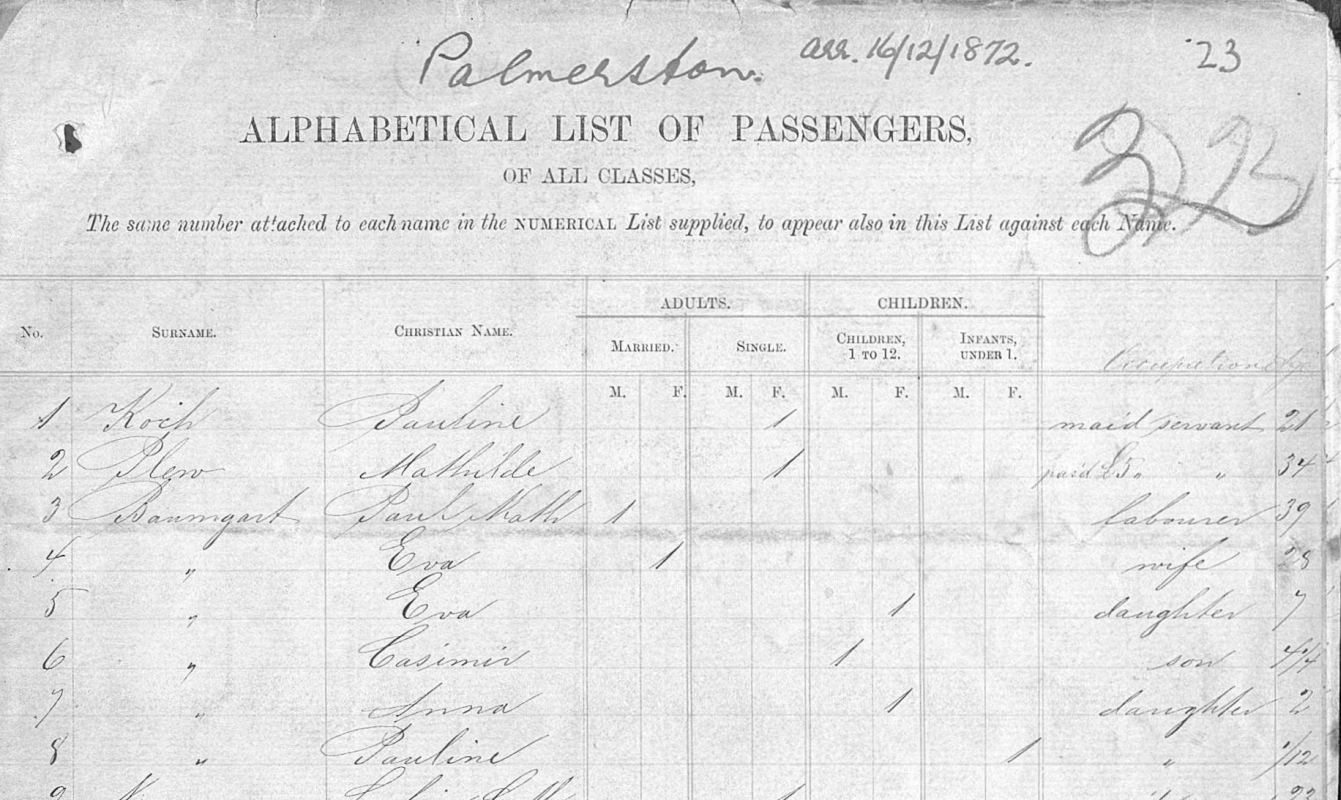 Palmerston. arr. 16/12/1872. 23
ALPHABETICAL LIST OF PASSENGERS,
OF ALL CLASSES,
323
The same number attached to each name in the NUMERICAL List supplied, to appear also in this List against each Name.
ADULTS. CHILDREN.
No. SURNAME. CHRISTIAN NAME. MARRIED. SINGLE. CHILDREN, 1 TO 12. INFANTS, UNDER 1. Occupation
M. F. M. F. M. F. M. F.
1 Koch Pauline 1 maid servant 21
2 Plew Mathilde 1 paid £5. " 34
3 Baumgart Paul Math 1 labourer 39
4 " Eva 1 wife 28
5 " Eva 1 daughter 7
6 " Casimir 1 son
7 " Anna 1 daughter 2
8 " Pauline 1 " 1/12
9